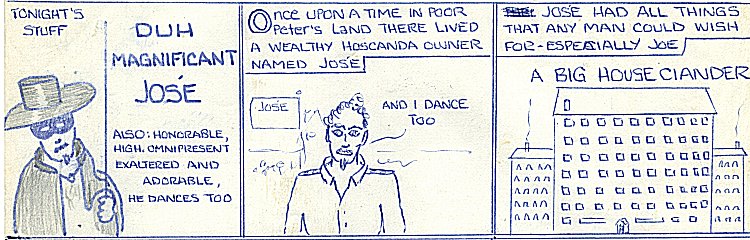 TONIGHT'S
STUFF
DUH
MAGNIFICANT
JOSÉ
ALSO: HONORABLE,
HIGH. OMNIPRESENT
EXALTERED AND
ADORABLE,
HE DANCES TOO
ONCE UPON A TIME IN POOR
PETER'S LAND THERE LIVED
A WEALTHY HOSCANDA OWNER
NAMED JOSÉ
JOSE
AND I DANCE
TOO
JOSE HAD ALL THINGS
THAT ANY MAN COULD WISH
FOR-ESPECIALLY JOE
A BIG HOUSECIANDER